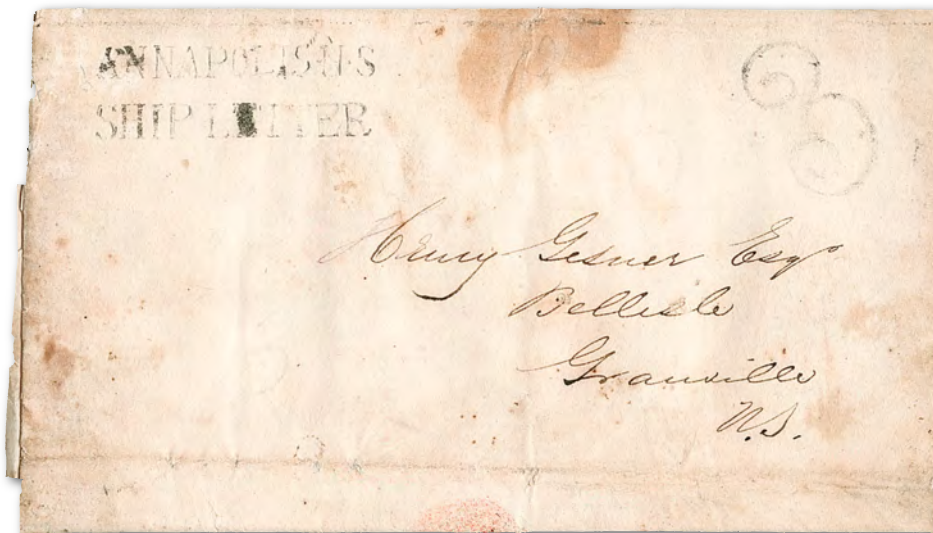 ANNAPOLIS N·S
SHIP LETTER
8
Henry Gesner Esqr
Bellisle
Granville
N.S.